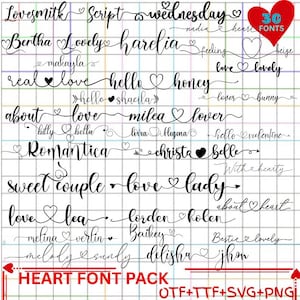 Lovesmith Script wednesday
30 FONTS
nadia heart
Bertha Loody harelia
feeling beige
makayla
love lovely
real love hello honey
hello shaela
loves bunny
about love milea lover
billy bella lovra Magona hello valentine
Romantica christa belle
With hearty
sweet couple love lady
about heart
love lea lorden holen
melina verlin Beathey Bestie lovely
melody sandy delisha jhon
HEART FONT PACK
OTF+TTF+SVG+PNG